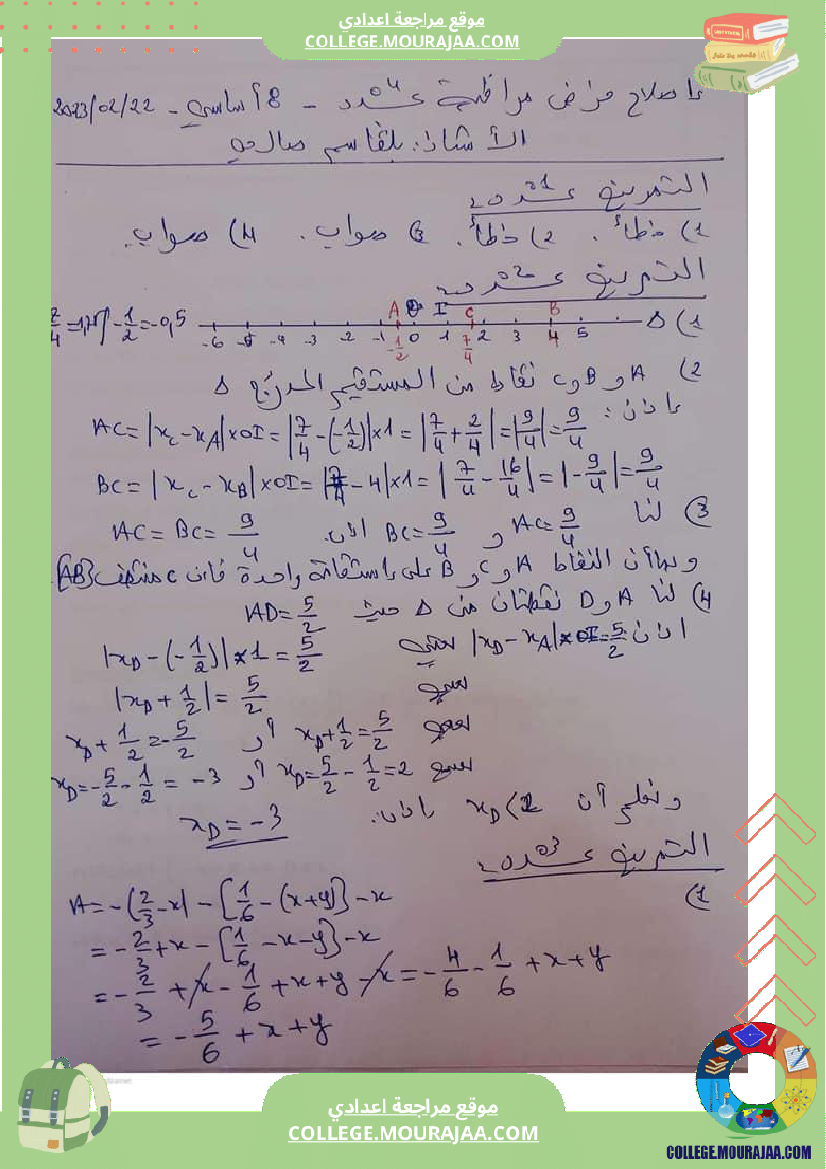 موقع مراجعة اعدادي
COLLEGE.MOURAJAA.COM
إصلاح فرض مراقبة عـ04ـدد - 8 أساسي - 2023/02/22
الأستاذ: بلقاسم صالحي
التمرين عـ01ـدد
1) خطأ. 2) خطأ. 3) صواب. 4) صواب.
التمرين عـ02ـدد
1) Δ -6 -5 -4 -3 -2 -1 A -1/2 0 I 1 C 7/4 2 3 B 4 5
7/4=1,75 / -1/2=-0,5
2) A و B و C نقاط من المستقيم المدرّج Δ
إذن:
AC=|x_C-x_A|×OI=|7/4-(-1/2)|×1=|7/4+2/4|=|9/4|=9/4
BC=|x_C-x_B|×OI=|7/4-4|×1=|7/4-16/4|=|-9/4|=9/4
3) لنا AC=9/4 و BC=9/4 اذن AC=BC=9/4
وبما أن النقاط A و C و B على استقامة واحدة فإن C منتصف [AB]
4) لنا A و D نقطتان من Δ حيث AD=5/2
اذن |x_D-x_A|×OI=5/2 يعني |x_D-(-1/2)|×1=5/2
يعني |x_D+1/2|=5/2
يعني x_D+1/2=5/2 أو x_D+1/2=-5/2
يعني x_D=5/2-1/2=2 أو x_D=-5/2-1/2=-3
ونعلم أن x_D< إذن x_D=-3
التمرين عـ03ـدد
1)
A=-(2/3-x)-[1/6-(x+y)]-x
=-2/3+x-[1/6-x-y]-x
=-2/3+x-1/6+x+y-x=-4/6-1/6+x+y
=-5/6+x+y
موقع مراجعة اعدادي
COLLEGE.MOURAJAA.COM
COLLEGE.MOURAJAA.COM